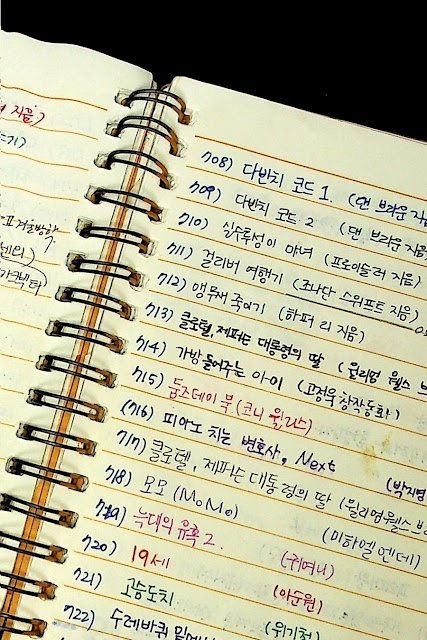 지음)
708) 다빈치 코드 1. (댄 브라운 지음
709) 다빈치 코드 2 (댄 브라운 지음)
710) 실수투성이 마녀 (프로이슬러 지음)
711) 걸리버 여행기 (조나단 스위프트 지음)
712) 앵무새 죽이기 (하퍼 리 지음)
713) 클로텔, 제퍼슨 대통령의 딸 (윌리엄 웰스 브
714) 가방 들어주는 아이 (고정욱 창작동화)
715) 둠즈데이 북 (코니 윌리스)
716) 피아노 치는 변호사, Next (박지영
717) 클로텔, 제퍼슨 대통령의 딸 (윌리엄 웰스 브
718) 모모 (MoMo) (미하엘 엔데)
719) 늑대의 유혹 2. (귀여니)
720) 19세 (이순원)
721) 고등도치 (위기철
722) 수레바퀴 밑에